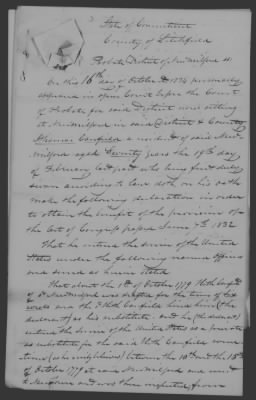 State of Connecticut
County of Litchfield
Probate District of New Milford ss.
On this 16th day of October 1832 personally
appeared in open Court before the Court
of Probate for said District now sitting
at New Milford in said District & County
Thomas Canfield a resident of said New
Milford aged Seventy years the 19th day
of February last past who being first duly
sworn according to law doth on his oath
make the following declaration in order
to obtain the benefit of the provision of
the Act of Congress passed June 7th 1832
That he entered the service of the United
States under the following named officers
and served as herein stated
That about the 1st of October 1779 Ithl Canfield
of New Milford was for the term of six
weeks and the sd Ithl Canfield hired him (the
declarant) as his substitute and he (the declarant)
entered the service of the United States as a private
as substitute for the said Ithl Canfield some
time (as he verily believes) between the 10th and the 15th
of October 1779 at said New Milford and went
to and was there